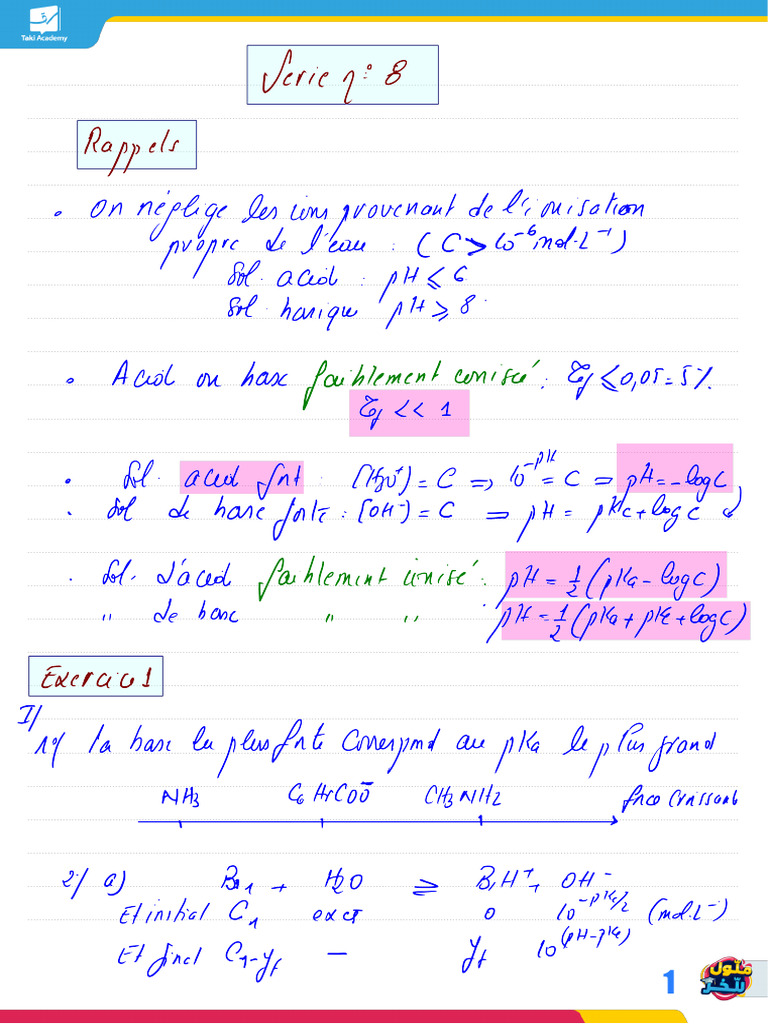 Taki Academy
Serie n° 8
Rappels
• On néglige les ions provenant de l'ionisation
propre de l'eau : (C > 10⁻⁶ mol.L⁻¹)
Sol. acid : pH ⩽ 6
Sol. basique pH ⩾ 8.
• Acid ou base faiblement ionisé : τf ⩽ 0,05 = 5%.
τf << 1
• Sol. acid fort : [H3O⁺] = C ⇒ 10^-pH = C ⇒ pH = -log C
• Sol de base forte : [OH⁻] = C ⇒ pH = pKe + log C
• Sol. d'acid faiblement ionisé : pH = 1/2 (pKa - log C)
" de base " " : pH = 1/2 (pKa + pKe + log C)
Exercice 1
I/
1°/ la base la plus forte correspond au pKa le plus grand
NH3 C6H5COO⁻ CH3NH2 force croissant
2°/ a) B1 + H2O ⇌ B1H⁺ + OH⁻
Et initial C1 excé 0 10^-pKe/2 (mol.L⁻¹)
Et final C1-yf — yf 10^(pH-pKe)
1